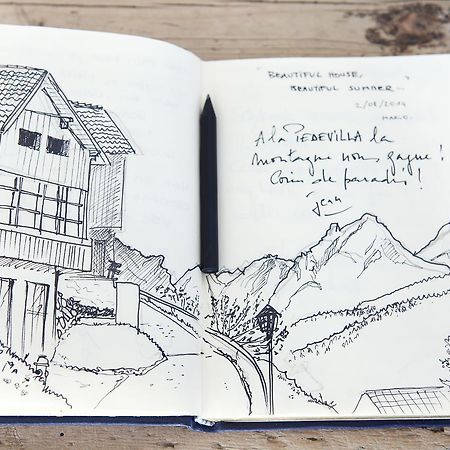 "BEAUTIFUL HOUSE,
BEAUTIFUL SUMBER"
2/08/2014
MARIO.
A la PIEDEVILLA la
montagne nous gagne !
Coin de paradis !
jean